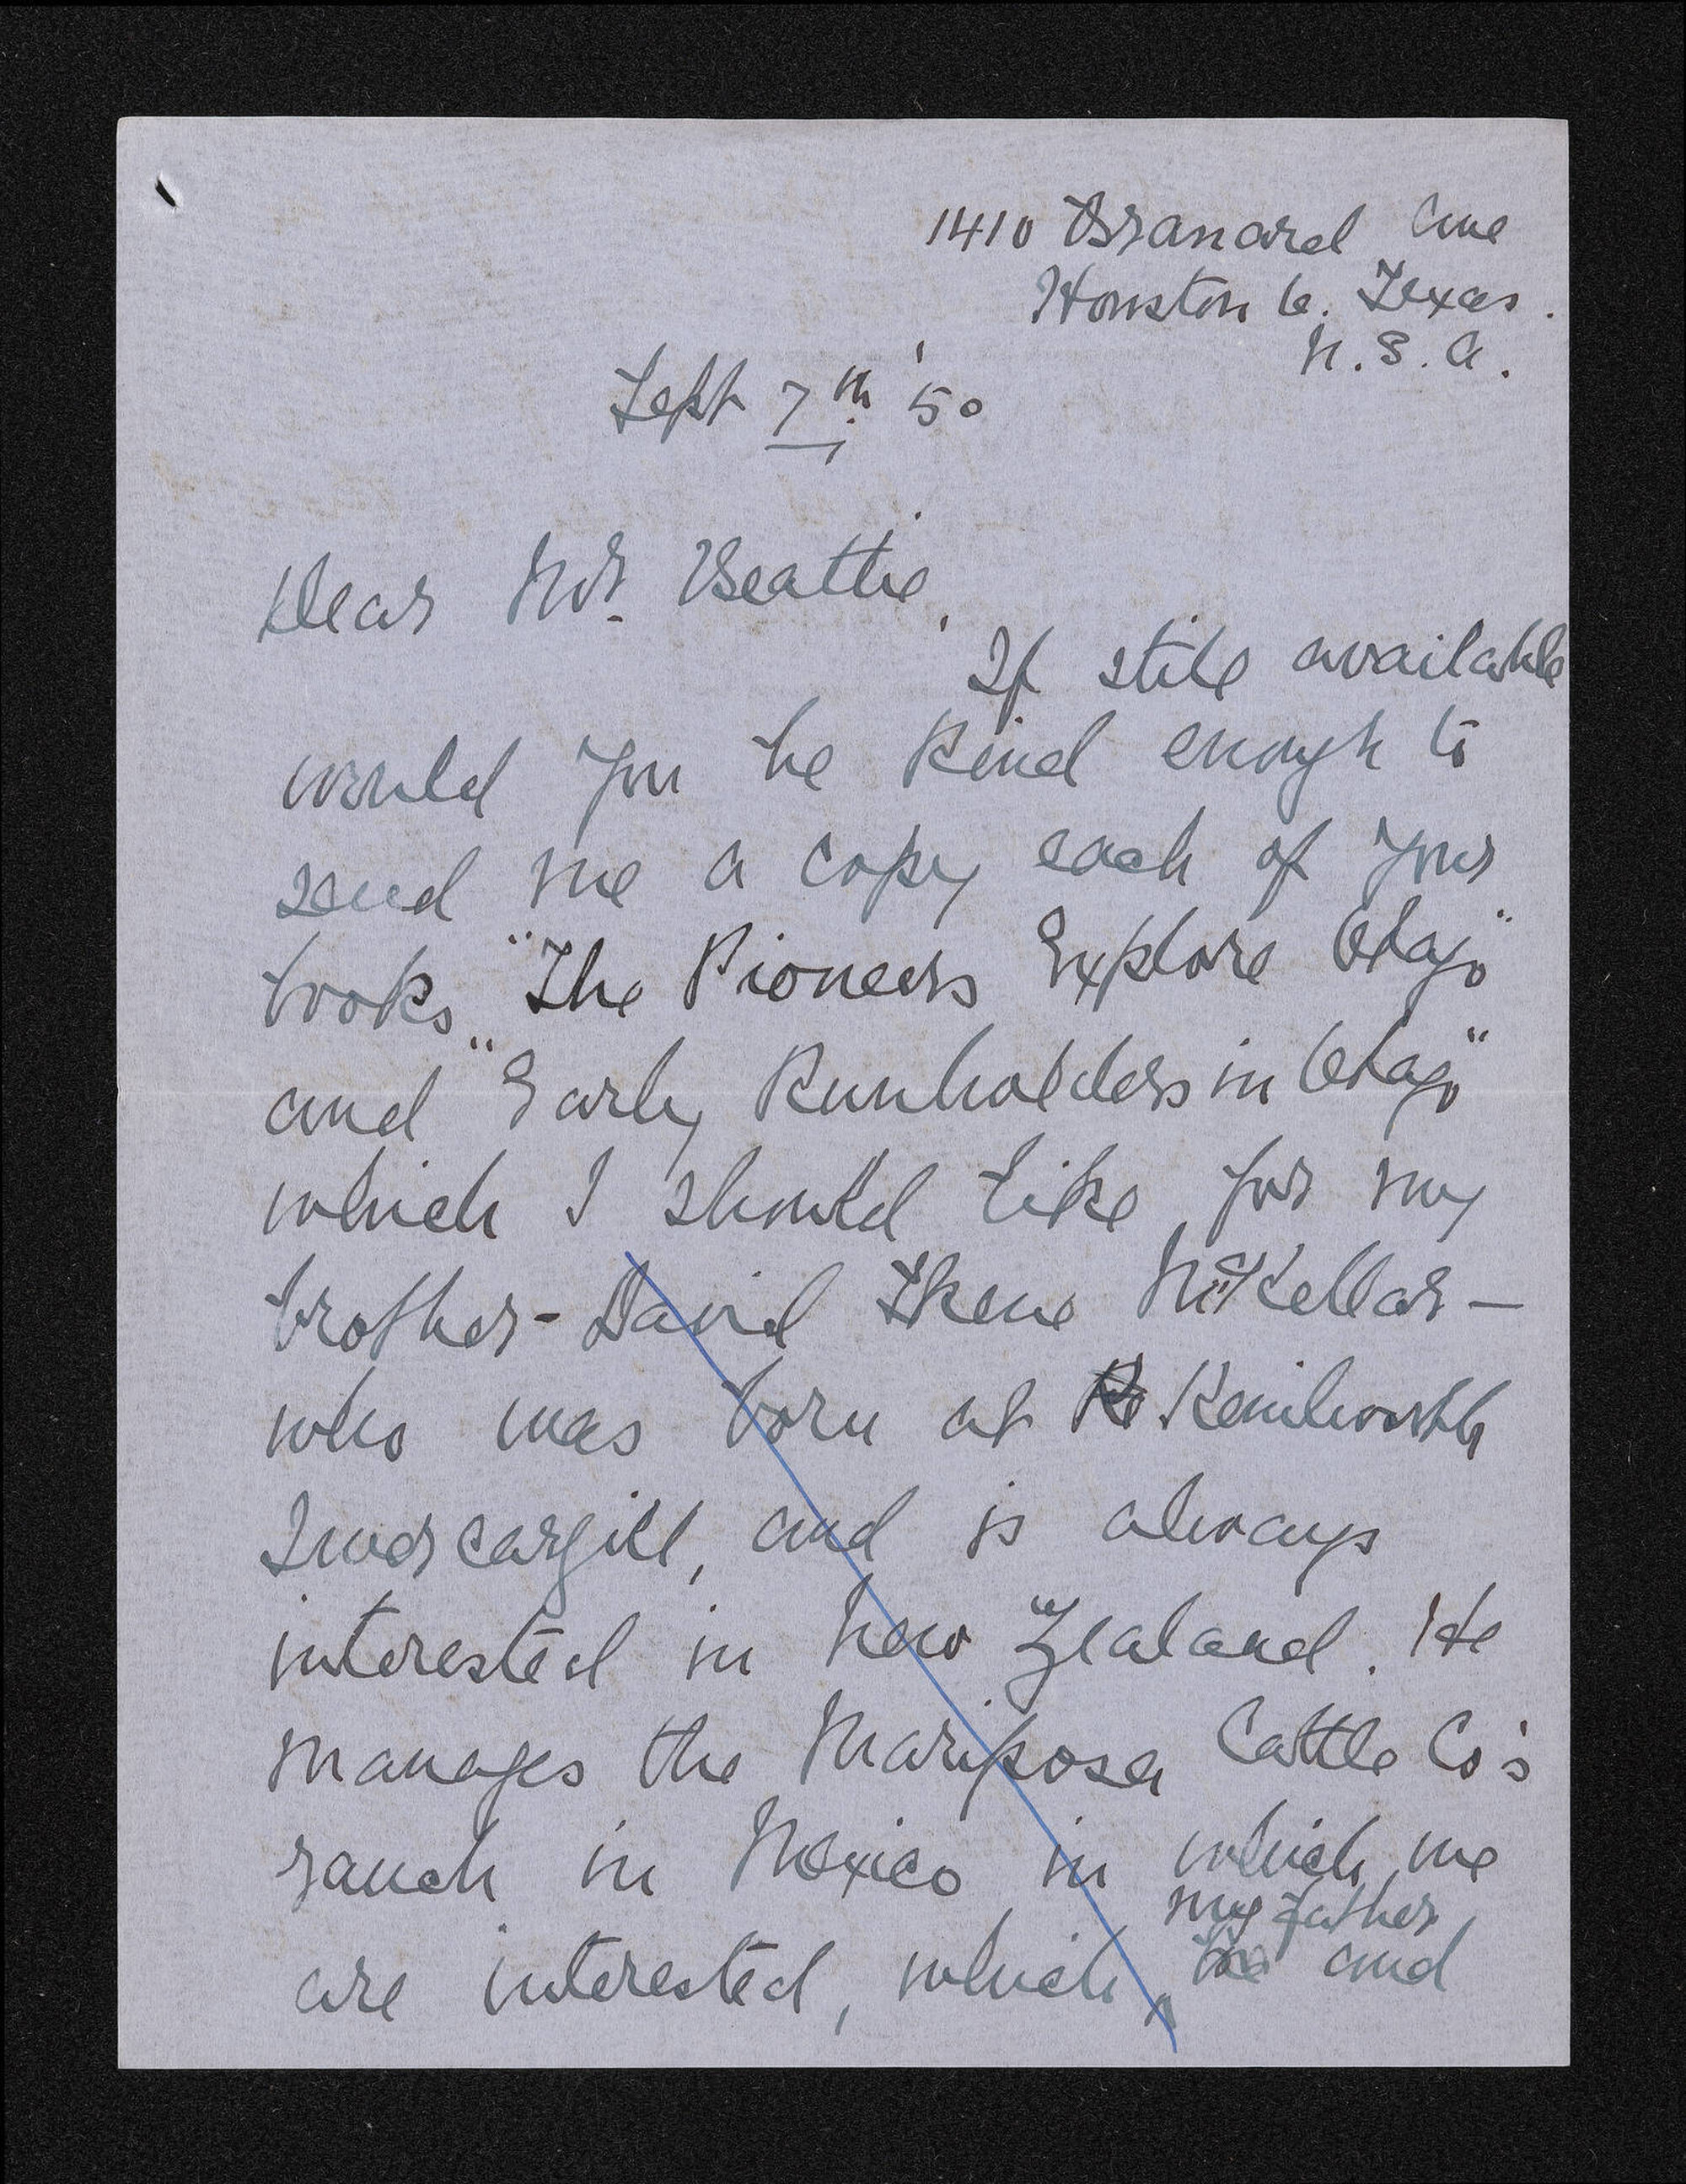 1410 Branard Ave
Houston 6. Texas.
U.S.A.
Sept 7th '50
Dear Mr. Beattie,
If still available
would you be kind enough to
send me a copy each of your
books "The Pioneers Explore Otago"
and "Early Runholders in Otago"
which I should like for my
brother - David Skene McKellar -
who was born at Kenilworth
Invercargill, and is always
interested in New Zealand. He
manages the Mariposa Cattle Co's
ranch in Mexico in which we
my father
are interested, which he and